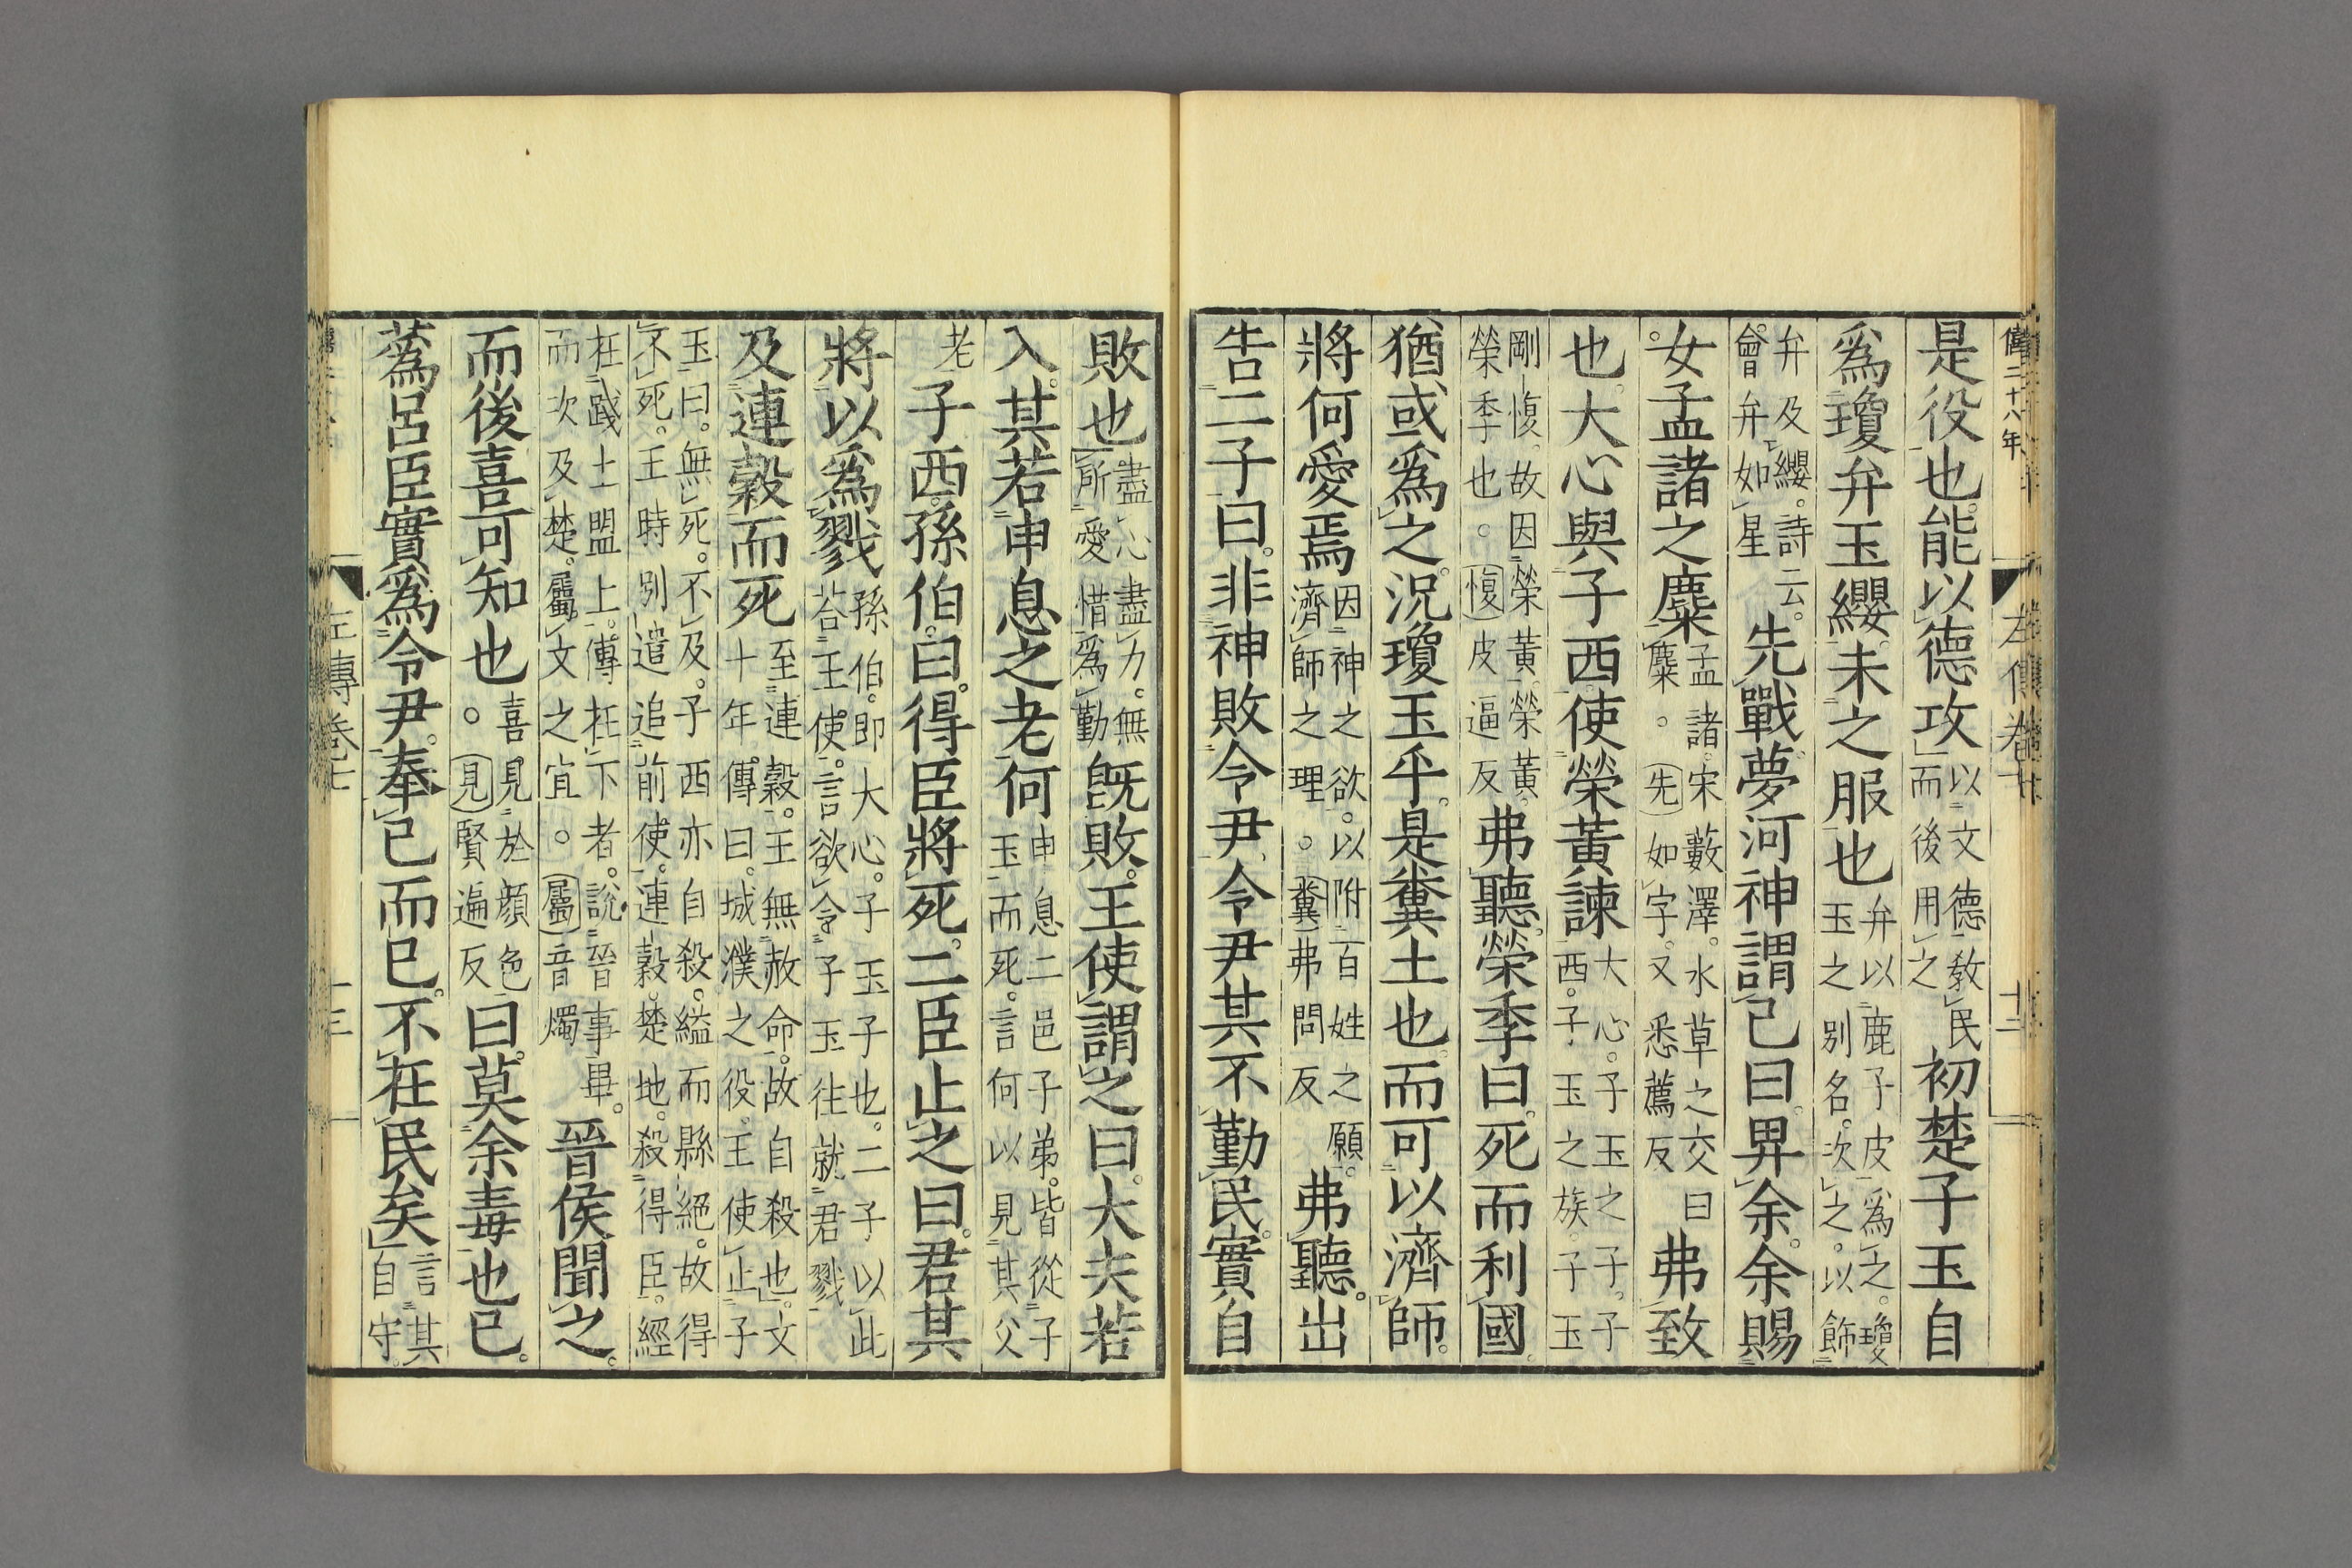 僖二十八年　左傳卷七　十二
是役也。能以德攻以文德教民而後用之初楚子玉自
爲瓊弁玉纓。未之服也弁以鹿子皮爲之。瓊玉之別名。次之。以飾
弁及纓。詩云。會弁如星先戰。夢河神謂己曰。畀余。余賜
女孟諸之麋孟諸。宋藪澤。水草之交曰麋。先如字。又悉薦反弗致
也。大心與子西。使榮黃諫大心。子玉之子。子西。子玉之族。子玉
剛愎。故因榮黃。榮黃。榮季也。愎皮逼反弗聽。榮季曰。死而利國。
猶或爲之。況瓊玉乎。是糞土也。而可以濟師。
將何愛焉因神之欲。以附百姓之願。濟師之理。糞弗問反弗聽。出
告二子曰。非神敗令尹。令尹其不勤民。實自
敗也盡心盡力。無所愛惜爲勤旣敗。王使謂之曰。大夫若
入。其若申息之老何申息二邑子弟。皆從子玉而死。言何以見其父
老子西。孫伯。曰。得臣將死。二臣止之曰。君其
將以爲戮孫伯。卽大心。子玉子也。二子以此荅王使。言欲令子玉往就君戮
及連穀而死至連穀。王無赦命。故自殺也。文十年。傳曰。城濮之役。王使止子
玉曰。無死。不及。子西亦自殺。縊而縣絕。故得不死。王時別遣追前使。連穀。楚地。殺得臣。經
在踐土盟上。傳在下者。說晉事畢。而次及楚。屬文之宜。屬音燭晉侯聞之。
而後喜可知也喜見於顏色。見賢遍反曰。莫余毒也已。
蔿呂臣實爲令尹。奉己而已。不在民矣言其自守。
左傳卷七　十三